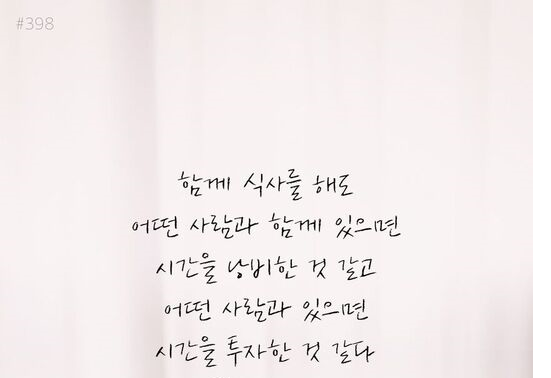 #398
함께 식사를 해도
어떤 사람과 함께 있으면
시간을 낭비한 것 같고
어떤 사람과 있으면
시간을 투자한 것 같다